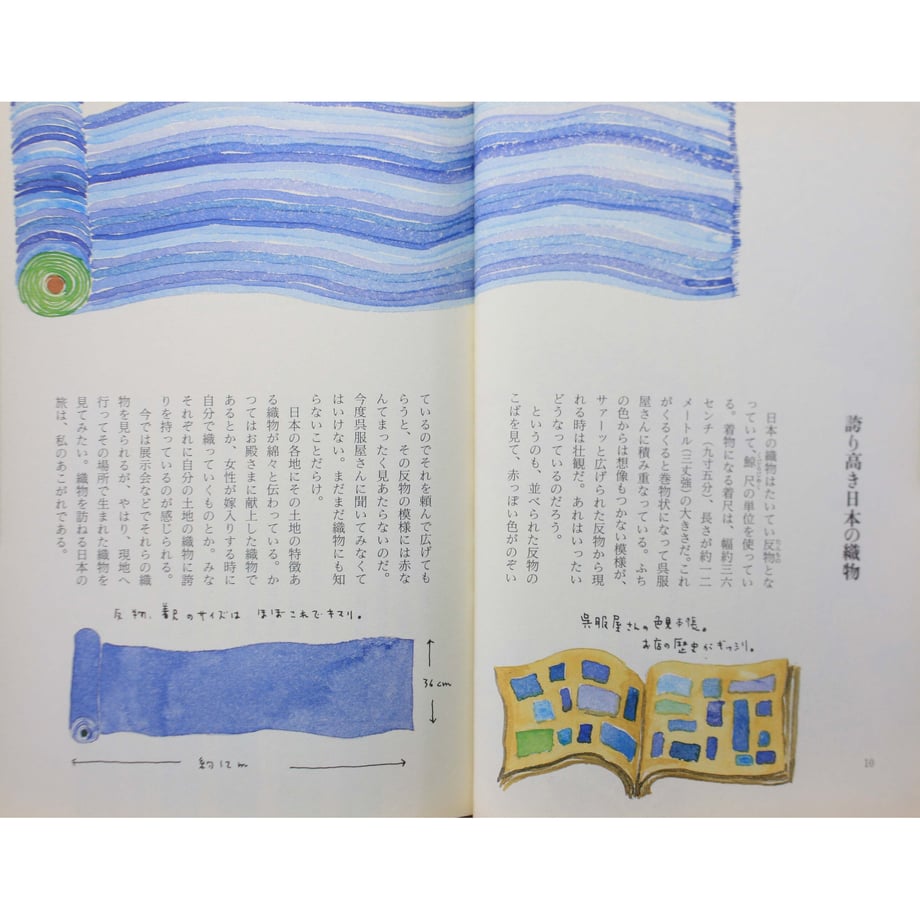 誇り高き日本の織物
日本の織物はたいてい反物とな
っていて、鯨尺の単位を使ってい
る。着物になる着尺は、幅約三六
センチ(九寸五分)、長さが約一二
メートル(三丈強)の大きさだ。これ
がくるくると巻物状になって呉服
屋さんに積み重なっている。ふち
の色からは想像もつかない模様が、
サァーッと広げられた反物から現
れる時は壮観だ。あれはいったい
どうなっているのだろう。
というのも、並べられた反物の
こばを見て、赤っぽい色がのぞい
ているのでそれを頼んで広げても
らうと、その反物の模様には赤な
んてまったく見あたらないのだ。
今度呉服屋さんに聞いてみなくて
はいけない。まだまだ織物にも知
らないことだらけ。
日本の各地にその土地の特徴あ
る織物が綿々と伝わっている。か
つてはお殿さまに献上した織物で
あるとか、女性が嫁入りする時に
自分で織っていくものとか。みな
それぞれに自分の土地の織物に誇
りを持っているのが感じられる。
今では展示会などでそれらの織
物を見られるが、やはり、現地へ
行ってその場所で生まれた織物を
見てみたい。織物を訪ねる日本の
旅は、私のあこがれである。
呉服屋さんの色見本帳。
お店の歴史がぎっしり。
反物、着尺のサイズは ほぼこれでキマリ。
36cm
約12m
10